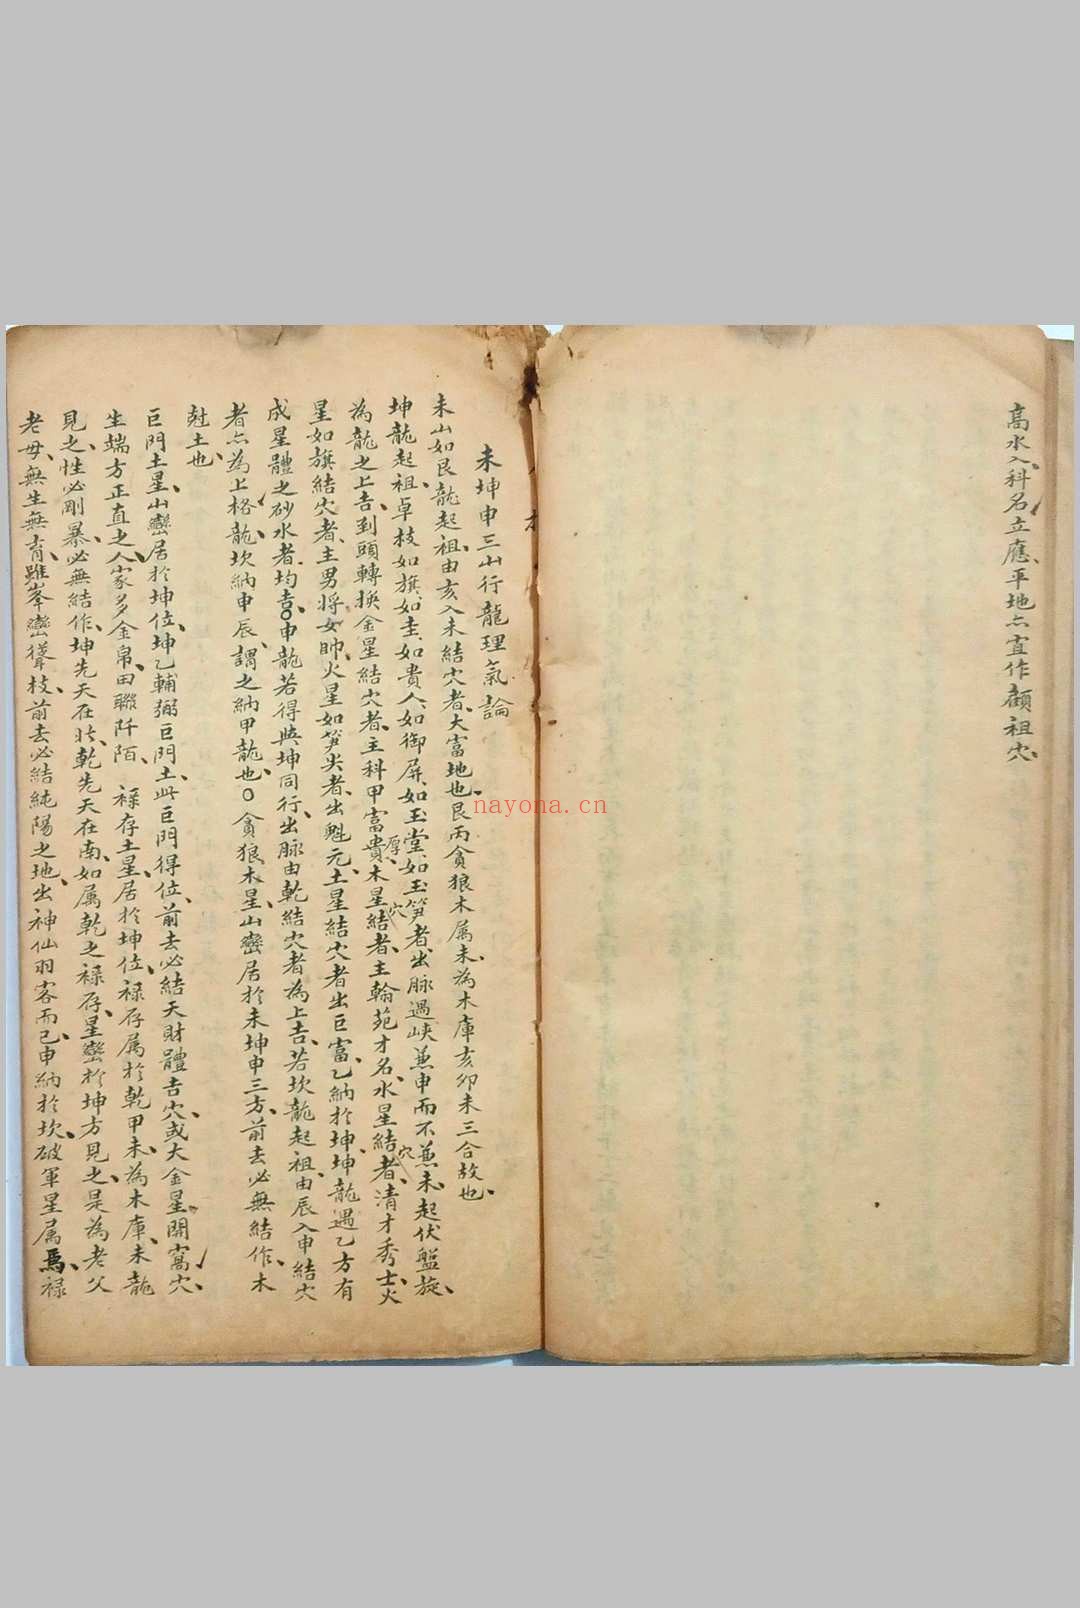 高水入科名立應平地亠宜作顧祖穴
未坤申三山行龍理氣論
未山如艮龍起祖由亥入未結穴者大富地也艮丙貪狼木属未為木庫亥卯未三合故也
坤龍起祖卓枝如旗如圭如貴人如御屏如玉堂如玉笋者出脉過峽兼申而不兼未起伏盤旋
為龍之上吉到頭轉換金星結穴者主科甲富貴厚木星結穴者主翰苑才名水星結穴者清才秀士火
星如旗結穴者主男將女帥火星如笋尖者出魁元土星結穴者出巨富乙納於坤坤龍遇乙方有
成星體之砂水者均吉○申龍若得與坤同行出脉由乾結穴者為上吉若坎龍起祖由辰入申結穴
者亠為上格龍坎納申辰謂之納甲龍也○貪狼木星山巒居於未坤申三方前去必無結作木
尅土也
巨門土星山巒居於坤位坤乙輔弼巨門土此巨門得位前去必結天財體吉穴或大金星開窩穴
生端方正直之人家多金帛田聯阡陌 祿存土星居於坤位祿存属於乾甲未為木庫未龍
見之性必剛暴必無結作坤先天在北乾先天在南如属乾之祿存星巒於坤方見之是為老父
老母無生無育雖峯巒聳枝前去必結純陽之地出神仙羽客而已申納於坎破軍星属焉祿
nayona.cn